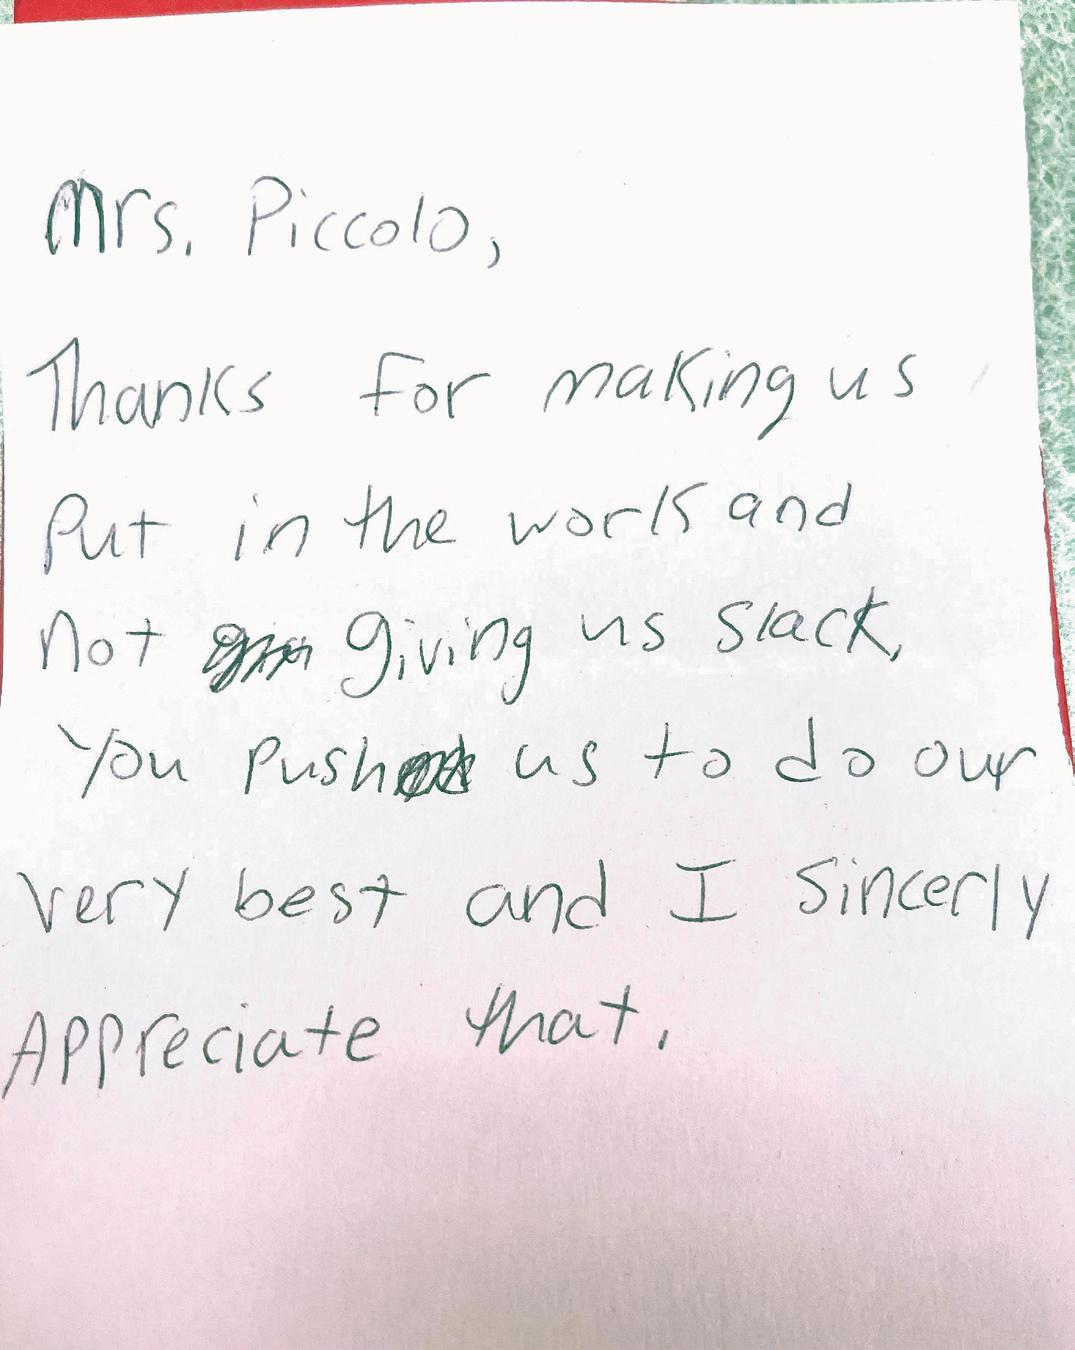 Mrs. Piccolo,
Thanks for making us
Put in the work and
not giving us slack,
You push us to do our
very best and I Sincerly
Appreciate that.